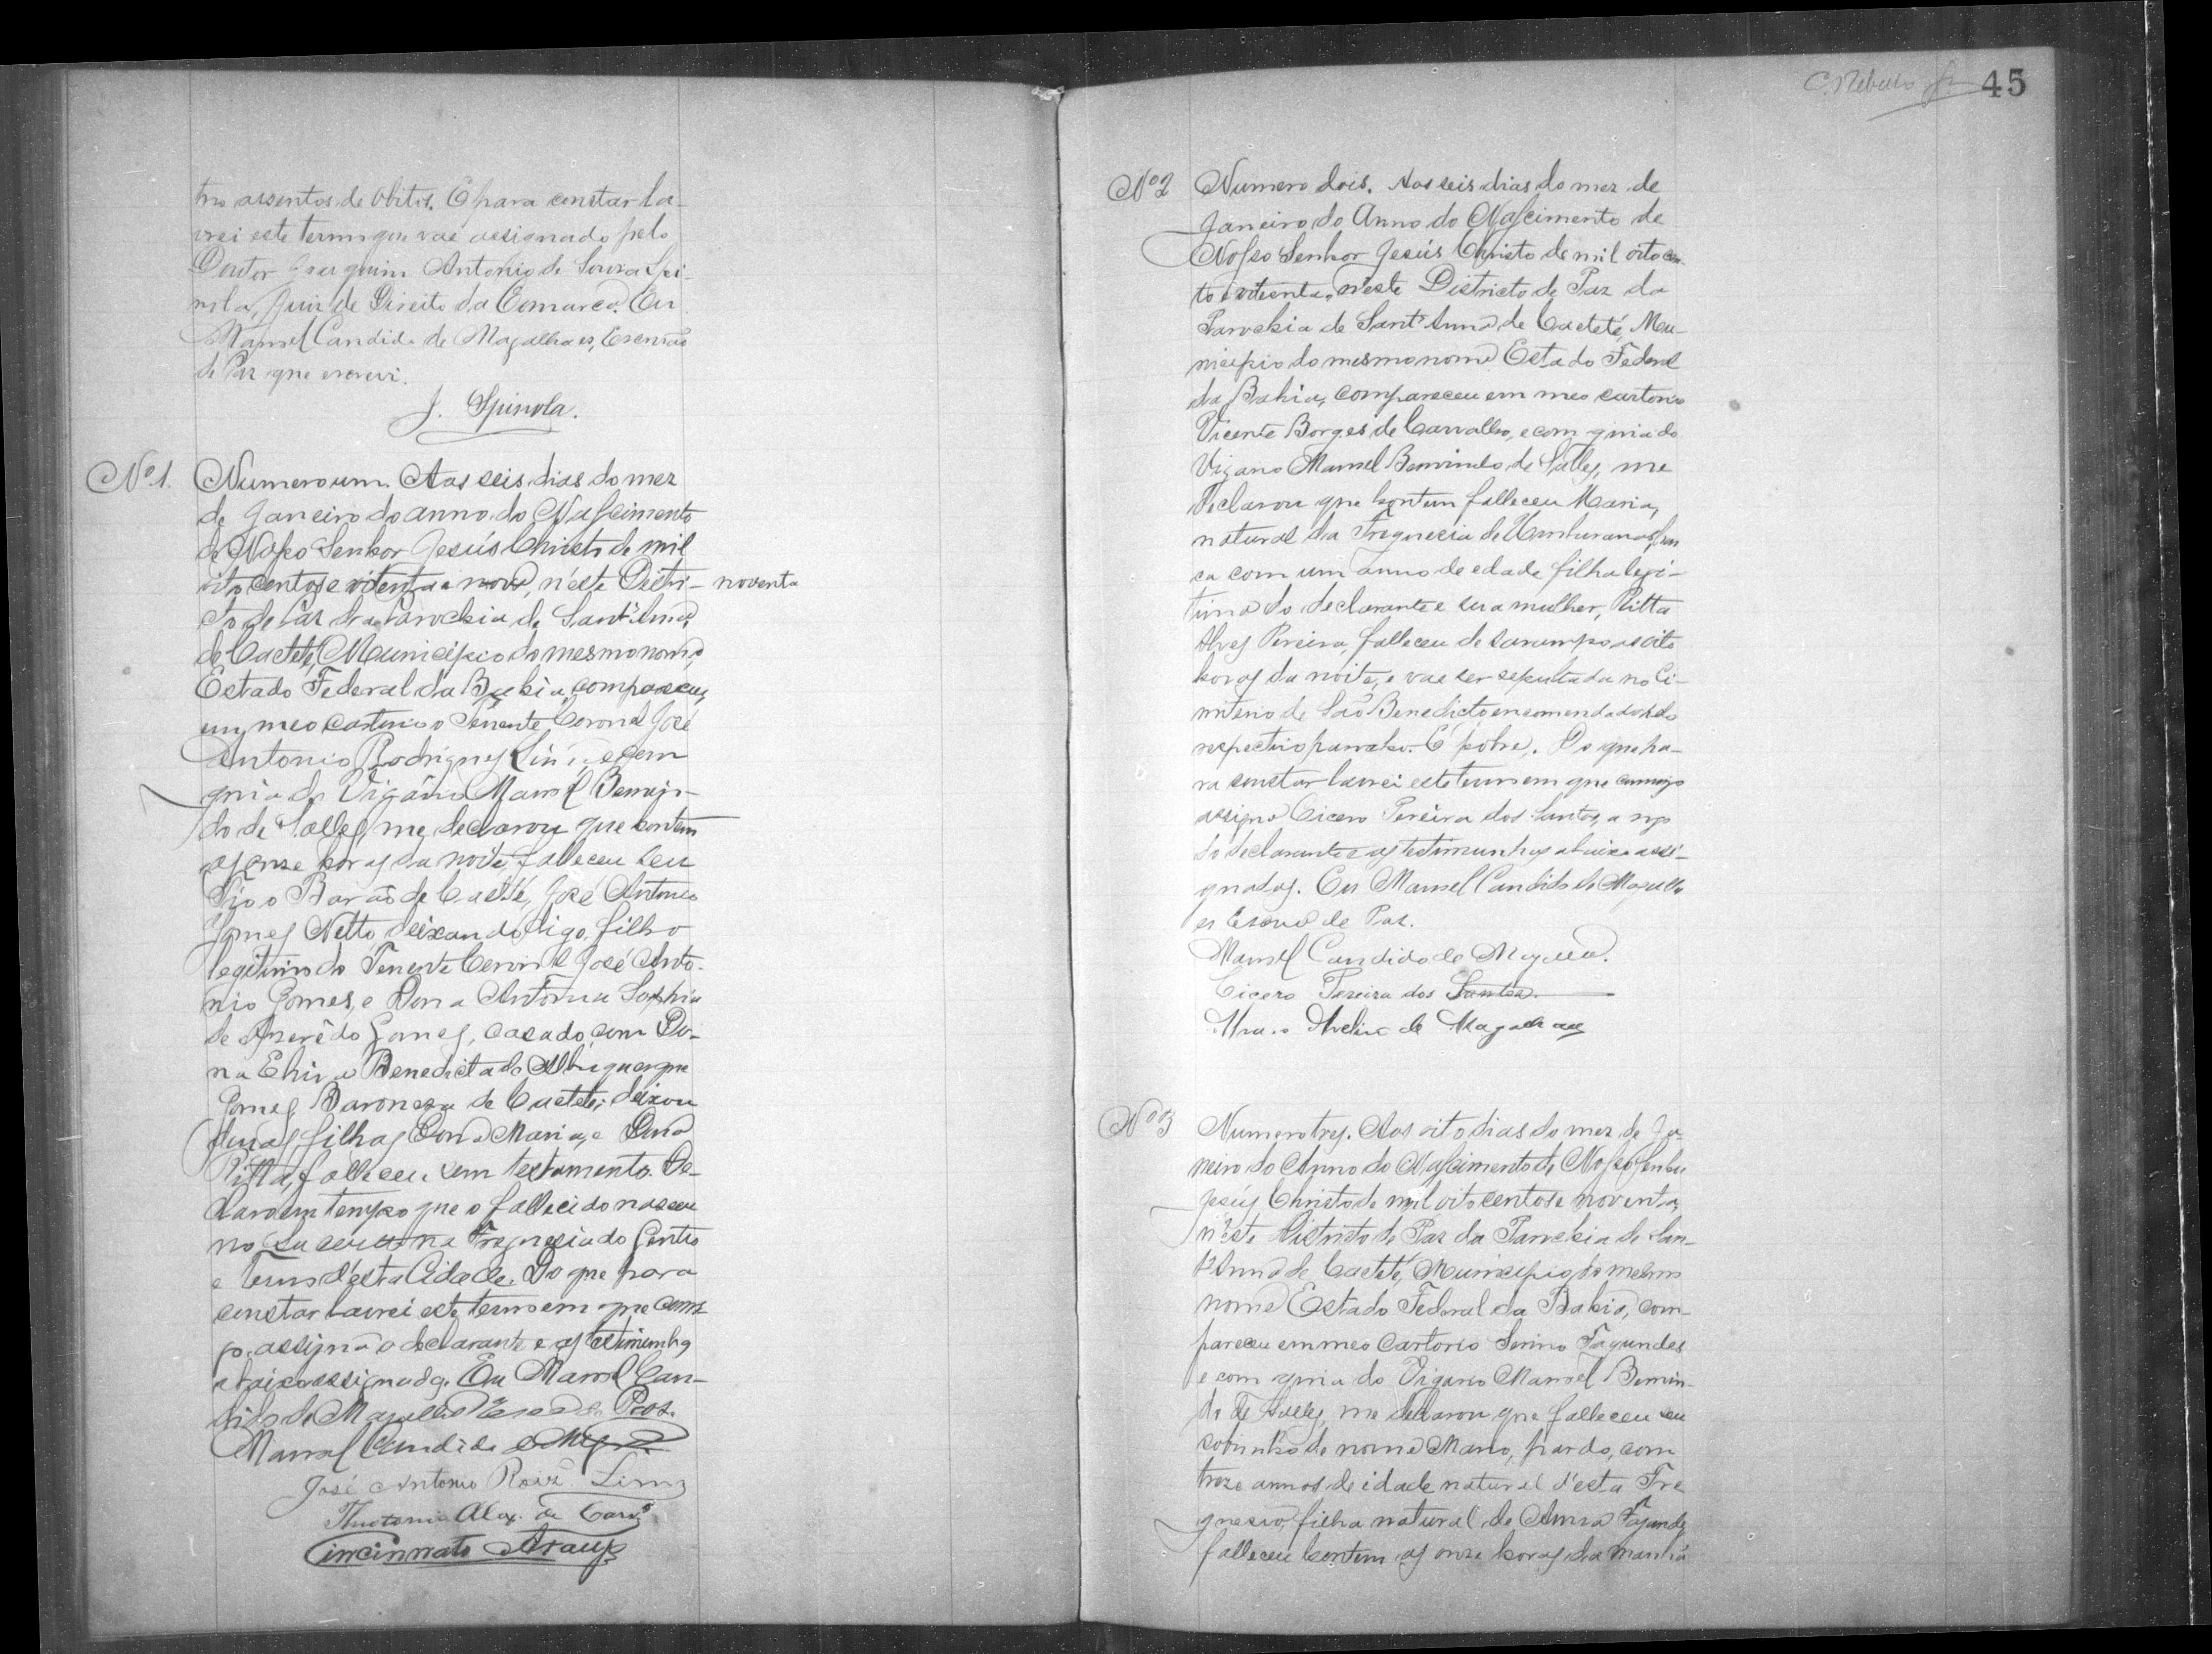 tro assentos de obitos. E para constar la-
vrei este termo que vae assignado pelo
Doutor Joaquim Antonio de Souza Spi-
nola, Juiz de Direito da Comarca. Eu
Manoel Candido de Magalhães, Escrivão
de Paz que escrevi.
J. Spinola.
Nº 1. Numero um. Aos seis dias do mez
de Janeiro do anno do Nascimento
de Nosso Senhor Jesús Christo de mil
oito centos e oitenta e nove, n'este Distri- noventa
cto de Paz da Parochia de Sant'Anna
de Caeteté, Municipio do mesmo nome,
Estado Federal da Bahia, compareceu,
em meo cartorio o Tenente Coronel José
Antonio Rodrigues Lima, e com
guia do Vigário Manoel Benvin-
do de Salles, me declarou que hontem
as onze horas da noite falleceu seu
Tio o Barão de Caeteté, José Antonio
Gomes Netto deixando digo, filho
legitimo do Tenente Coronel José Anto-
nio Gomes, e Dona Antonia Sophia
de Azerêdo Gomes, casado com Do-
na Elvira Benedicta de Albuquerque
Gomes Baroneza de Caeteté, deixou
duas filhas Dona Maria, e Dona
Ritta, falleceu sem testamento. De-
claro em tempo que o fallecido nasceu
no na Freguesia do Gentio
e Termo d'esta Cidade. Do que para
constar lavrei este termo em que comi-
go assigna o declarante e as testimunhas
abaixo assignadas. Eu Manoel Can-
dido de Magalhães Paz.
Manoel Candido de
José Antonio Roiz Lima
Alex. de
Cincinnato Araujo
C. Rebello Jr. 45
Nº 2 Numero dois. Aos seis dias do mez de
Janeiro do Anno do Nascimento de
Nosso Senhor Jesús Christo de mil oito cen-
to e noventa, n'este Districto de Paz da
Parochia de Sant'Anna de Caeteté, Mu-
nicipio do mesmo nome Estado Federal
da Bahia, compareceu em meo cartorio
Vicente Borges de Carvalho, e com guia do
Vigario Manoel Benvindo de Salles, me
declarou que hontem falleceu Maria,
natural da Freguezia de Umburanas, bran
ca com um anno de edade filha legi-
tima do declarante e sua mulher, Ritta
Alves Pereira, falleceu de sarampo as oito
horas da noite, e vae ser sepultada no Ci-
miterio de São Benedicto encomendado pelo
respectivo parocho. É pobre. Do que pa-
ra constar lavrei este termo em que comigo
assigna Cicero Pereira dos Santos, a rogo
do declarante e as testimunhas abaixo assi-
gnadas. Eu Manoel Candido de Magalhã
es Escrivão de Paz.
Manoel Candido de Magalhães.
Cicero Pereira dos Santos.
Avelino de Magalhães
Nº 3 Numero tres. Aos oito dias do mez de Ja-
neiro do Anno do Nascimento de Nosso Senhor
Jesús Christo de mil oito centos e noventa,
n'este Districto de Paz da Parochia de San-
t'Anna de Caeteté, Municipio do mesmo
nome Estado Federal da Bahia, com-
pareceu em meo Cartorio Sirino Fagundes
e com guia do Vigario Manoel Benvin-
do de Salles, me declarou que falleceu seu
sobrinho de nome Mario, pardo, com
treze annos de idade natural d'esta Fre
guezia, filho natural de Anna Fagundes
falleceu hontem as onze horas da manhã